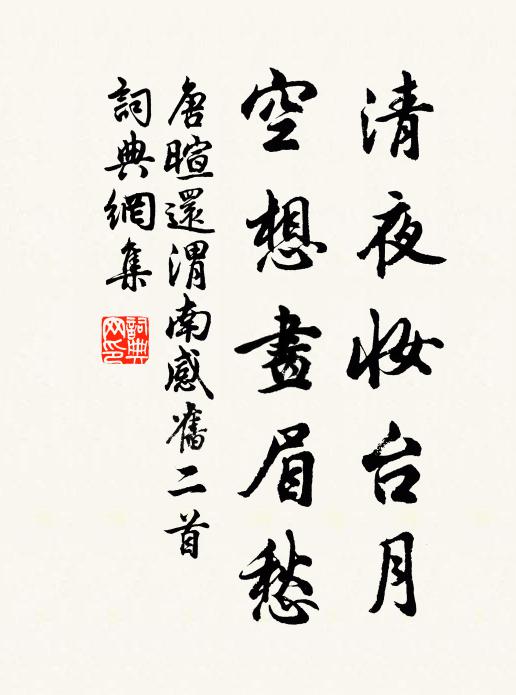 清夜妆台月
空想畫眉愁
唐暄還渭南感舊二首
詞典網集
詞典網印